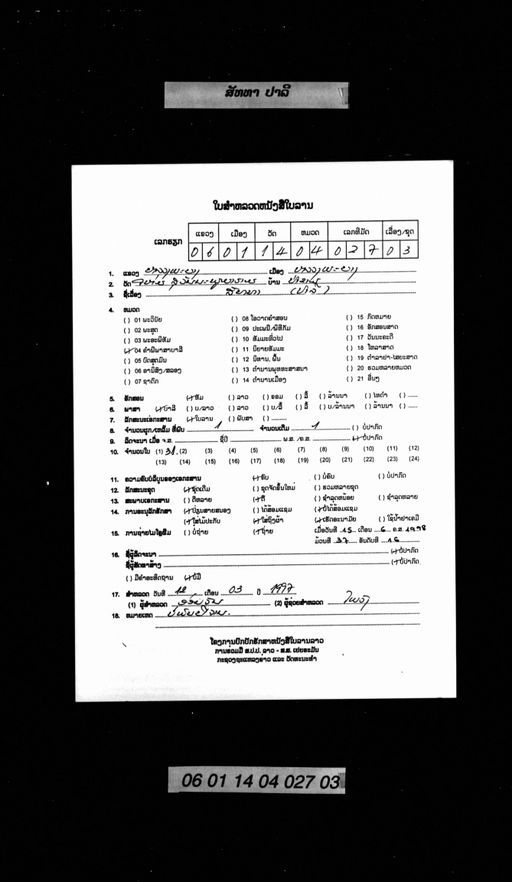 ສັທທາ ປາລິ
ໃບສຳຫລວດຫນັງສືໃບລານ
ແຂວງ ເມືອງ ວັດ ຫມວດ ເລກທີມັດ ເລື່ອງ/ຊຸດ
ເລກຮຽກ 0 6 0 1 1 4 0 4 0 2 7 0 3
1. ແຂວງ ເມືອງ
2. ວັດ ບ້ານ
3. ຊື່ເລື່ອງ
4. ຫມວດ
( ) 01 ພະວິນັຍ ( ) 08 ໂອວາດຄຳສອນ ( ) 15 ກົດຫມາຍ
( ) 02 ພະສູດ ( ) 09 ປະເພນີ/ພິທີກັມ ( ) 16 ອັກສອນສາດ
( ) 03 ພະອະພິທັມ ( ) 10 ທັມມະທົ່ວໄປ ( ) 17 ວັນນະຄະດີ
(✓) 04 ຄຳພີພາສາບາລີ ( ) 11 ນິຍາຍທັມມະ ( ) 18 ໂຫລາສາດ
( ) 05 ບົດສູດມົນ ( ) 12 ນິທານ, ພື້ນ ( ) 19 ຕຳລາຢາ-ໄສຍະສາດ
( ) 06 ອານິສົງ/ສລອງ ( ) 13 ຕຳນານພຸທທະສາສນາ ( ) 20 ຮວມຫລາຍຫມວດ
( ) 07 ຊາດົກ ( ) 14 ຕຳນານເມືອງ ( ) 21 ອື່ນໆ
5. ອັກສອນ (✓) ທັມ ( ) ລາວ ( ) ຂອມ ( ) ລື້ ( ) ລ້ານນາ ( ) ໄທດຳ ( ) ......
6. ພາສາ (✓) ບາລີ ( ) ບ/ລາວ ( ) ລາວ ( ) ບ/ລື້ ( ) ລື້ ( ) ບ/ລ້ານນາ ( ) ລ້ານນາ ( ) ......
7. ລັກສະນະເອກະສານ (✓) ໃບລານ ( ) ພັບສາ ( ) .........
8. ຈຳນວນຜູກ/ເຫລັ້ມ ທີ່ພົບ 1 ຈຳນວນເຕັມ 1 ( ) ບໍ່ປາກົດ
9. ລິດຈະນາ ເມື່ອ ຈ.ສ. ຊື່ປີ ພ.ສ. /ຄ.ສ. (✓) ບໍ່ປາກົດ
10. ຈຳນວນໃບ (1) 31 (2) (3) (4) (5) (6) (7) (8) (9) (10) (11) (12)
(13) (14) (15) (16) (17) (18) (19) (20) (21) (22) (23) (24)
11. ຄວາມສົມບໍລິບູນຂອງເອກະສານ (✓) ຄົບ ( ) ບໍ່ຄົບ ( ) ບໍ່ປາກົດ
12. ລັກສະນະຊຸດ (✓) ຊຸດເດີມ ( ) ຊຸດຈັດຂຶ້ນໃຫມ່ ( ) ຮວມຫລາຍຊຸດ
13. ສະພາບເອກະສານ ( ) ດີຫລາຍ (✓) ດີ ( ) ຊຳລຸດຫນ້ອຍ ( ) ຊຳລຸດຫລາຍ
14. ການອະນຸລັກຮັກສາ (✓) ປ່ຽນສາຍສນອງ ( ) ໄດ້ສ້ອມແຊມ (✓) ບໍ່ໄດ້ສ້ອມແຊມ
(✓) ໃສ່ໄມ້ປະກັບ (✓) ໃສ່ຖົງຜ້າ (✓) ເຮັດອະນາມັຍ ( ) ໃຊ້ນ້ຳຢາເຄມີ
15. ການຖ່າຍໄມໂຄຼຟິມ ( ) ບໍ່ຖ່າຍ (✓) ຖ່າຍ ເມື່ອວັນທີ 15 ເດືອນ 6 ຄ.ສ 1998
ມ້ວນທີ 37 ອັນດັບທີ 16
16. ຊື່ຜູ້ລິດຈະນາ (✓) ບໍ່ປາກົດ
ຊື່ຜູ້ສັທທາສ້າງ (✓) ບໍ່ປາກົດ
( ) ມີຄຳອະທິດຖານ (✓) ບໍ່ມີ
17. ສຳຫລວດ ວັນທີ 12 ເດືອນ 03 ປີ 1997
(1) ຜູ້ສຳຫລວດ (2) ຜູ້ຊ່ວຍສຳຫລວດ
18. ຫມາຍເຫດ
ໂຄງການປົກປັກຮັກສາຫນັງສືໃບລານລາວ
ການຮ່ວມມື ສ.ປ.ປ. ລາວ - ສ.ສ. ເຢຍຣະມັນ
ກະຊວງຖະແຫລງຂ່າວ ແລະ ວັດທະນະທຳ
06 01 14 04 027 03